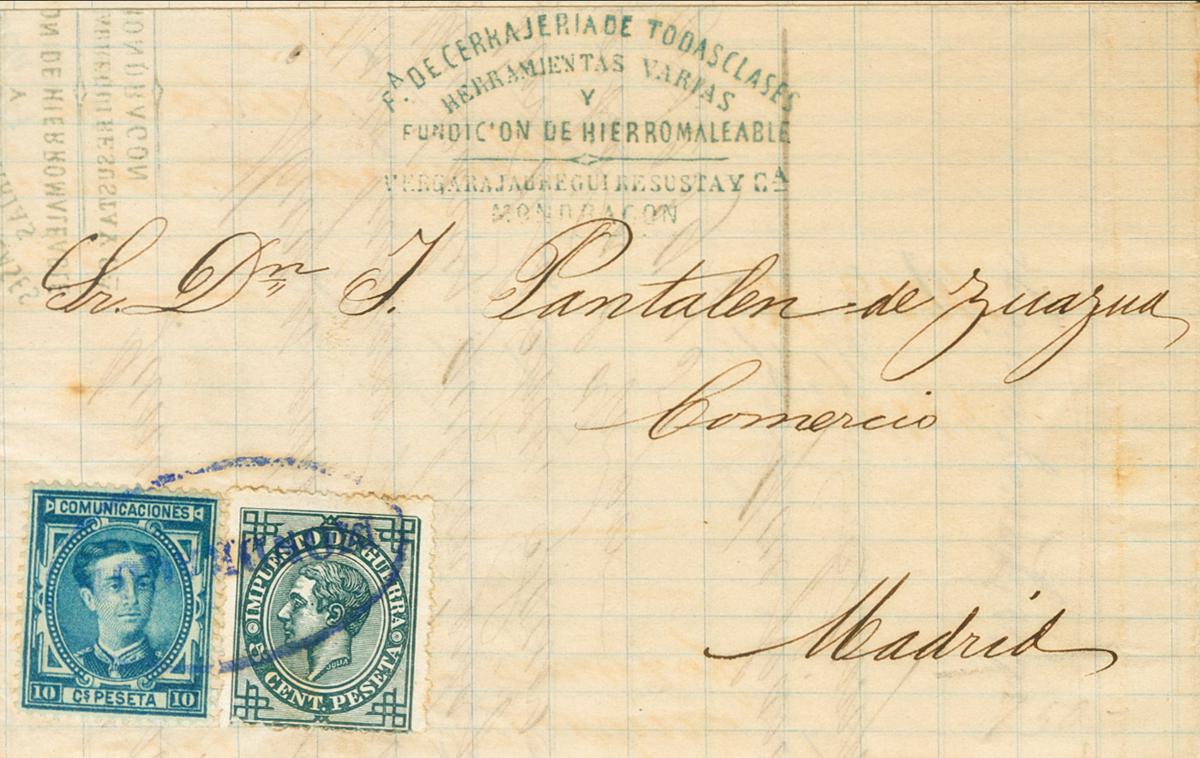 Fª. DE CERRAJERIA DE TODAS CLASES
HERRAMIENTAS VARIAS
Y
FUNDICION DE HIERRO MALEABLE
VERGARAJAUREGUI RESUSTA Y Cª
MONDRAGON
Sr. Dn J. Pantalen de Zuazua
Comercio
Madrid
COMUNICACIONES
10 Cs PESETA 10
IMPUESTO DE GUERRA
5 CENT. PESETA
JULIA
MONDRAGON
JAUREGUI RESUSTA Y Cª
ON DE HIERRO MALEABLE
Y